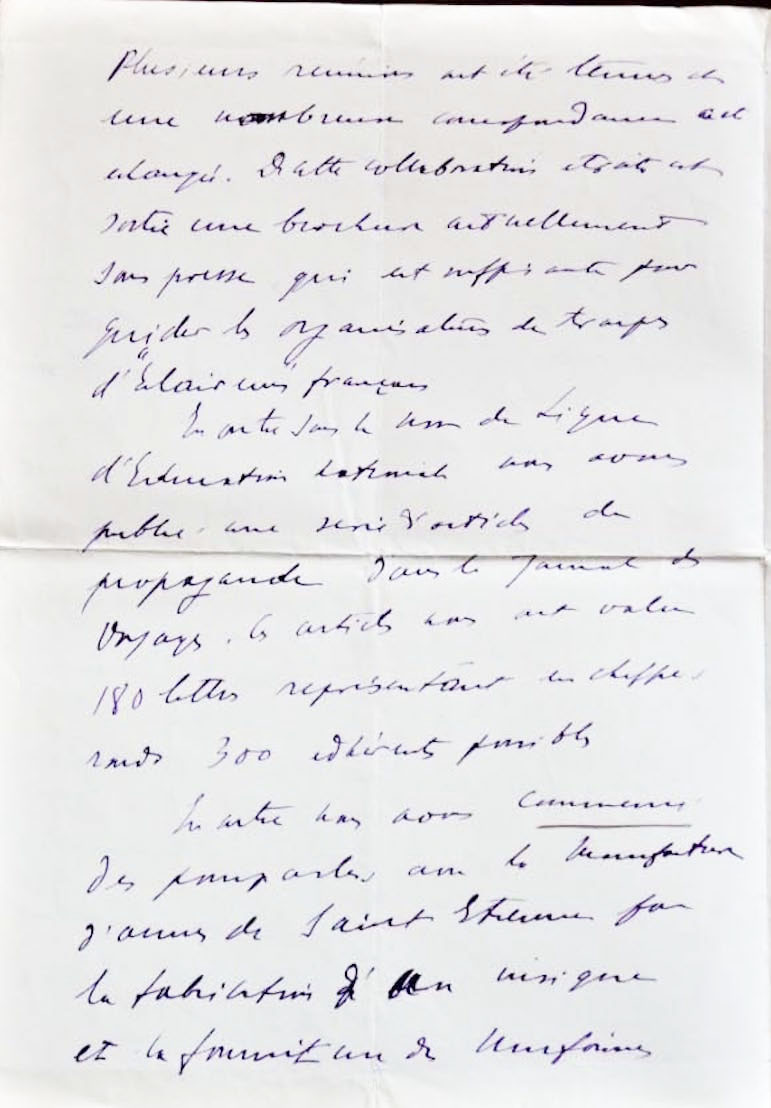 Plusieurs reunions ont été tenues et
une nombreuse correspondance a été
échangée. De cette collaboration étroite est
sortie une brochure actuellement
sous presse qui est suffisante pour
guider les organisateurs de troupes
d'"Eclaireurs" français
En outre sous le nom de Ligue
d'Education nationale nous avons
publié une serie d'articles de
propagande dans le Journal des
Voyages. Ces articles nous ont valu
180 lettres représentant en chiffres
ronds 300 adhérents possibles
En outre nous avons commencé
des pourparlers avec la Manufacture
d'armes de Saint Etienne pour
la fabrication d'un insigne
et la fourniture des Uniformes